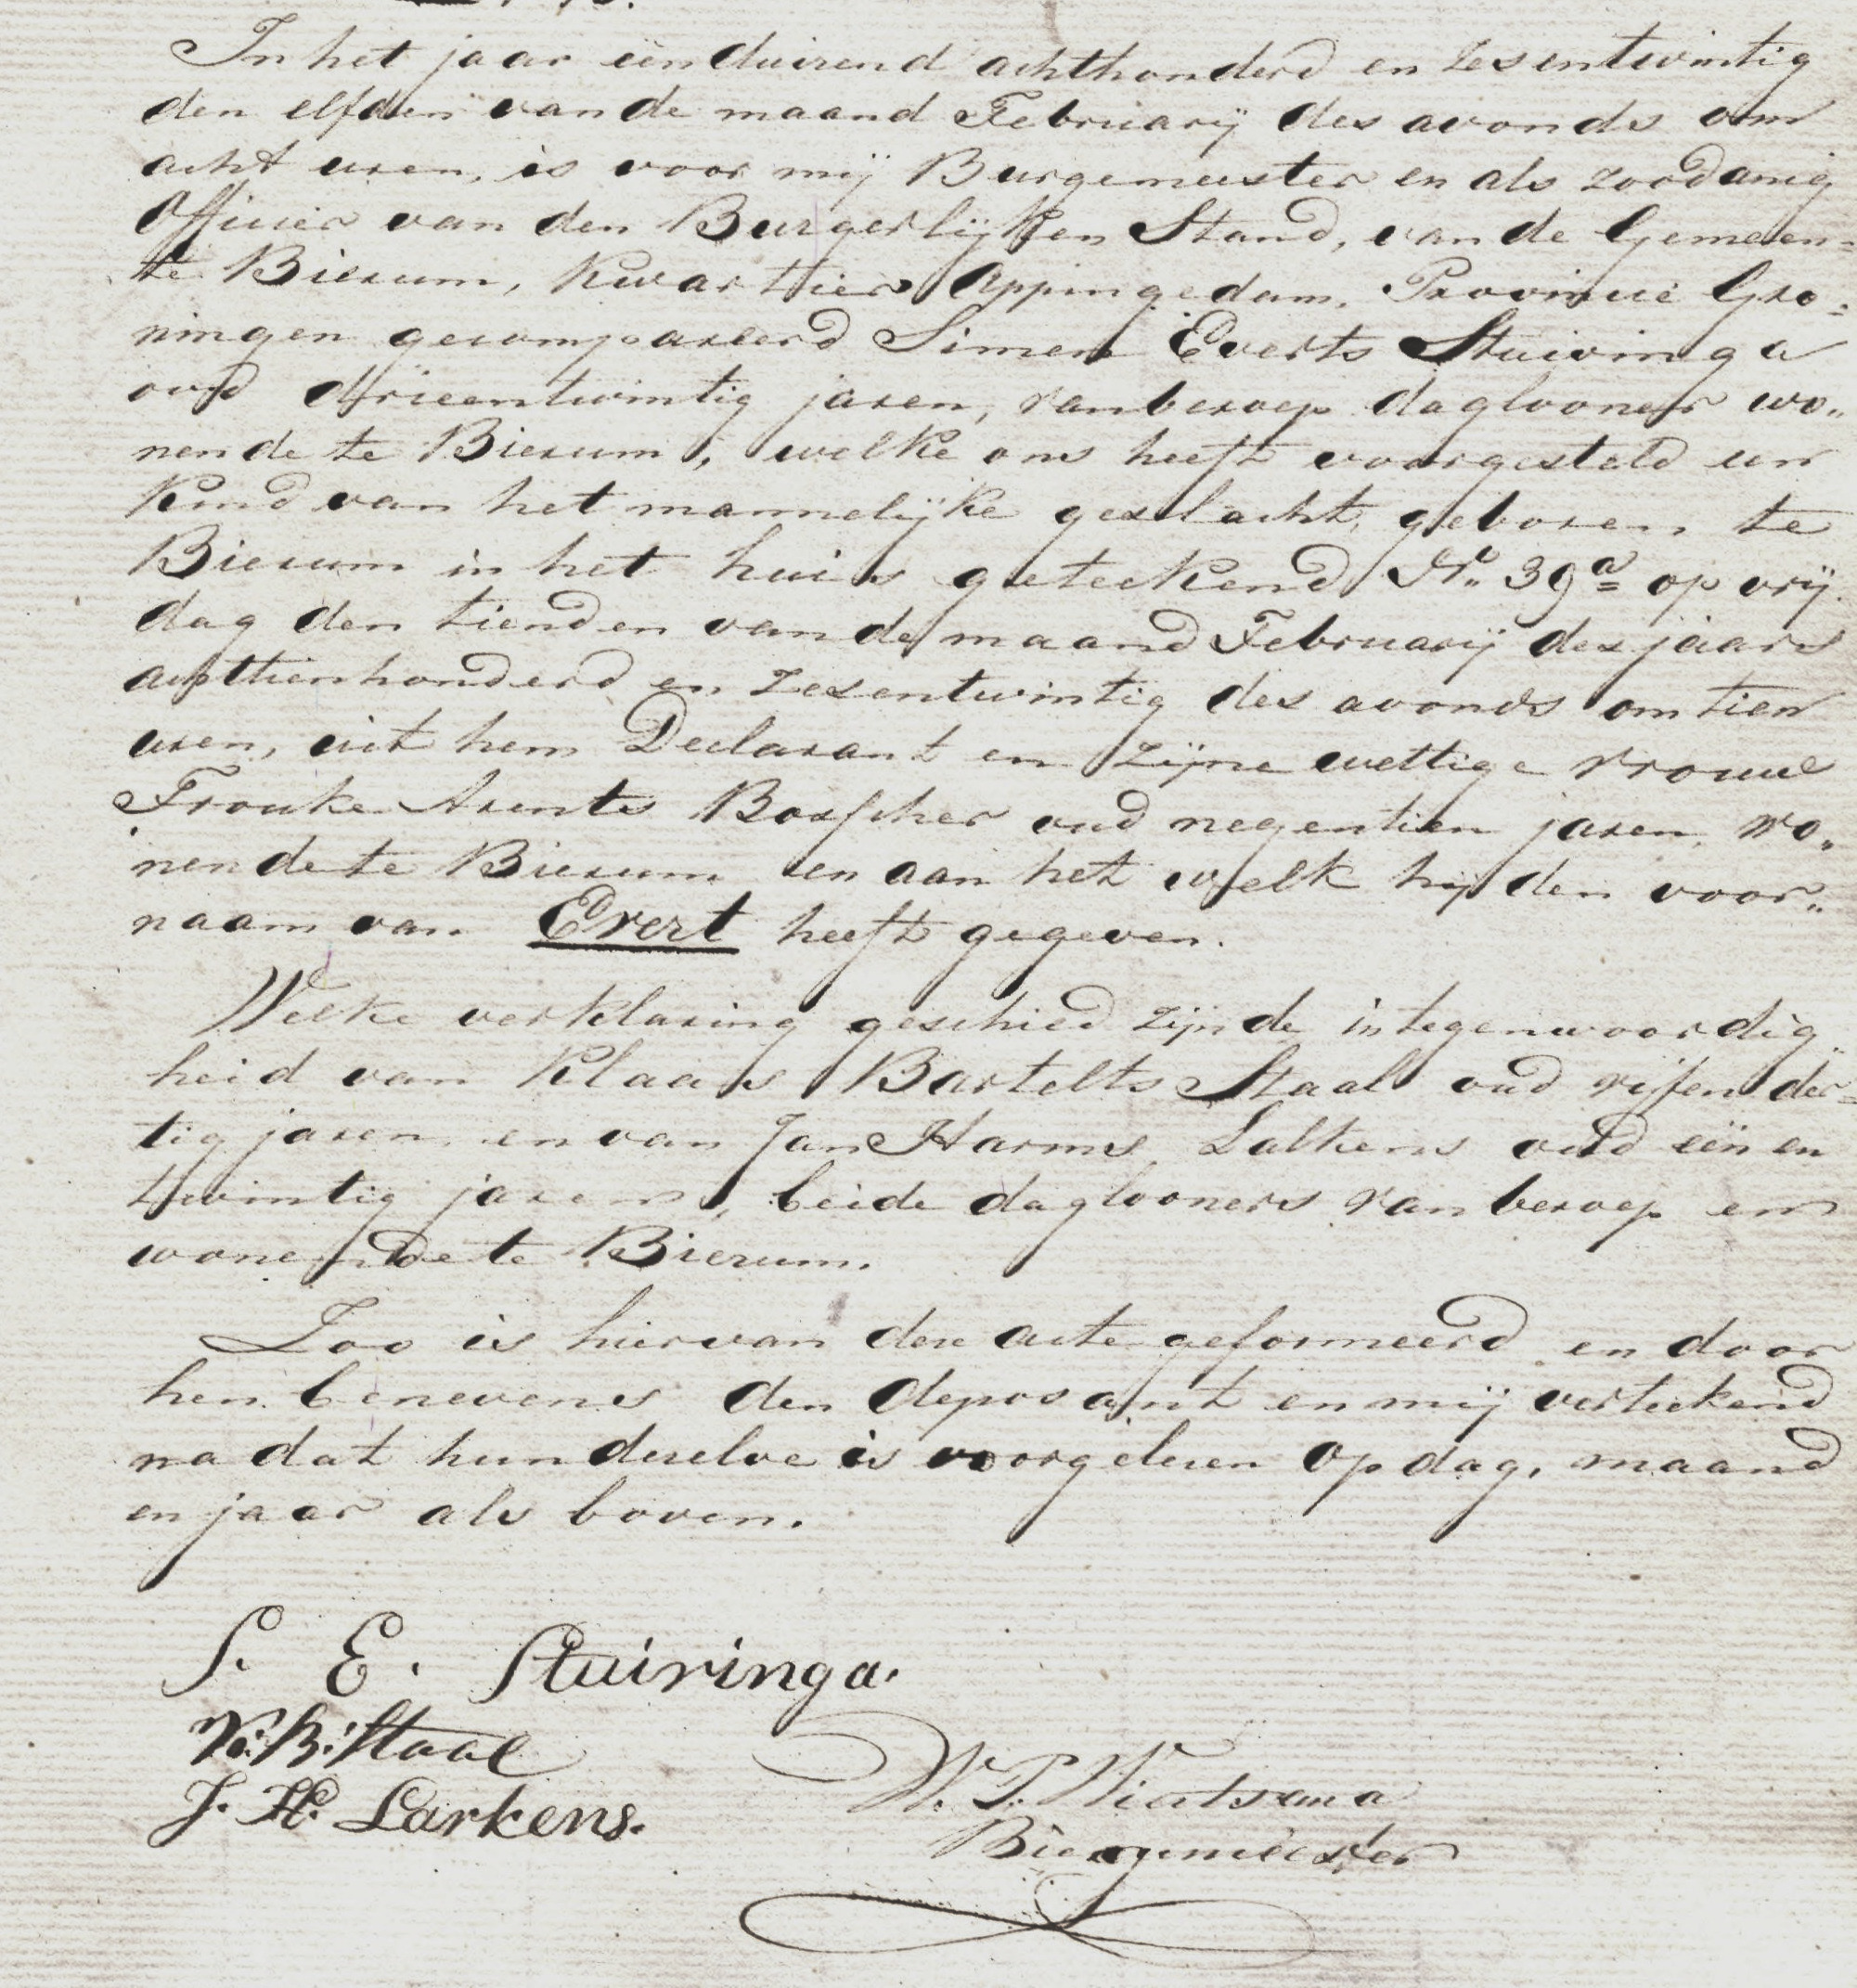 In het jaar een duizend achthonderd en zesentwintig
den elfden van de maand Februarij des avonds om
acht uren, is voor mij Burgemeester en als zoodanig
Officier van den Burgerlijken Stand, van de Gemeen=
te Bierum, Kwartier Appingedam, Provincie Gro=
ningen gecompareerd Simen Everts Stuivinga
oud drieentwintig jaren, van beroep daglooner wo„
nende te Bierum, welke ons heeft voorgesteld een
Kind van het mannelijke geslacht, geboren te
Bierum in het huis geteekend No. 39a op vrij.
dag den tienden van de maand Februarij des jaars
achttienhonderd en zesentwintig des avonds om tien
uren, uit hem Declarant en zijne wettige vrouw
Frouke Arents Borscher oud negentien jaren, wo„
nende te Bierum en aan het welk hij den voor„
naam van Evert heeft gegeven.
Welke verklaring geschied zijnde in tegenwoordig„
heid van Klaas Bartelts Staal oud vijfender=
tig jaren en van Jan Harms oud eënen
twintig jaren, beide daglooners van beroep en
wonende te Bierum.
Zoo is hiervan deze acte geformeerd en door
hen benevens den deposant en mij verteekend
na dat hun dezelve is voorgelezen op dag, maand
en jaar als boven.
S. E. Stuivinga.
K: B: Staal
J. H. Larkens.
W. P. Wiatsema
Burgemeester